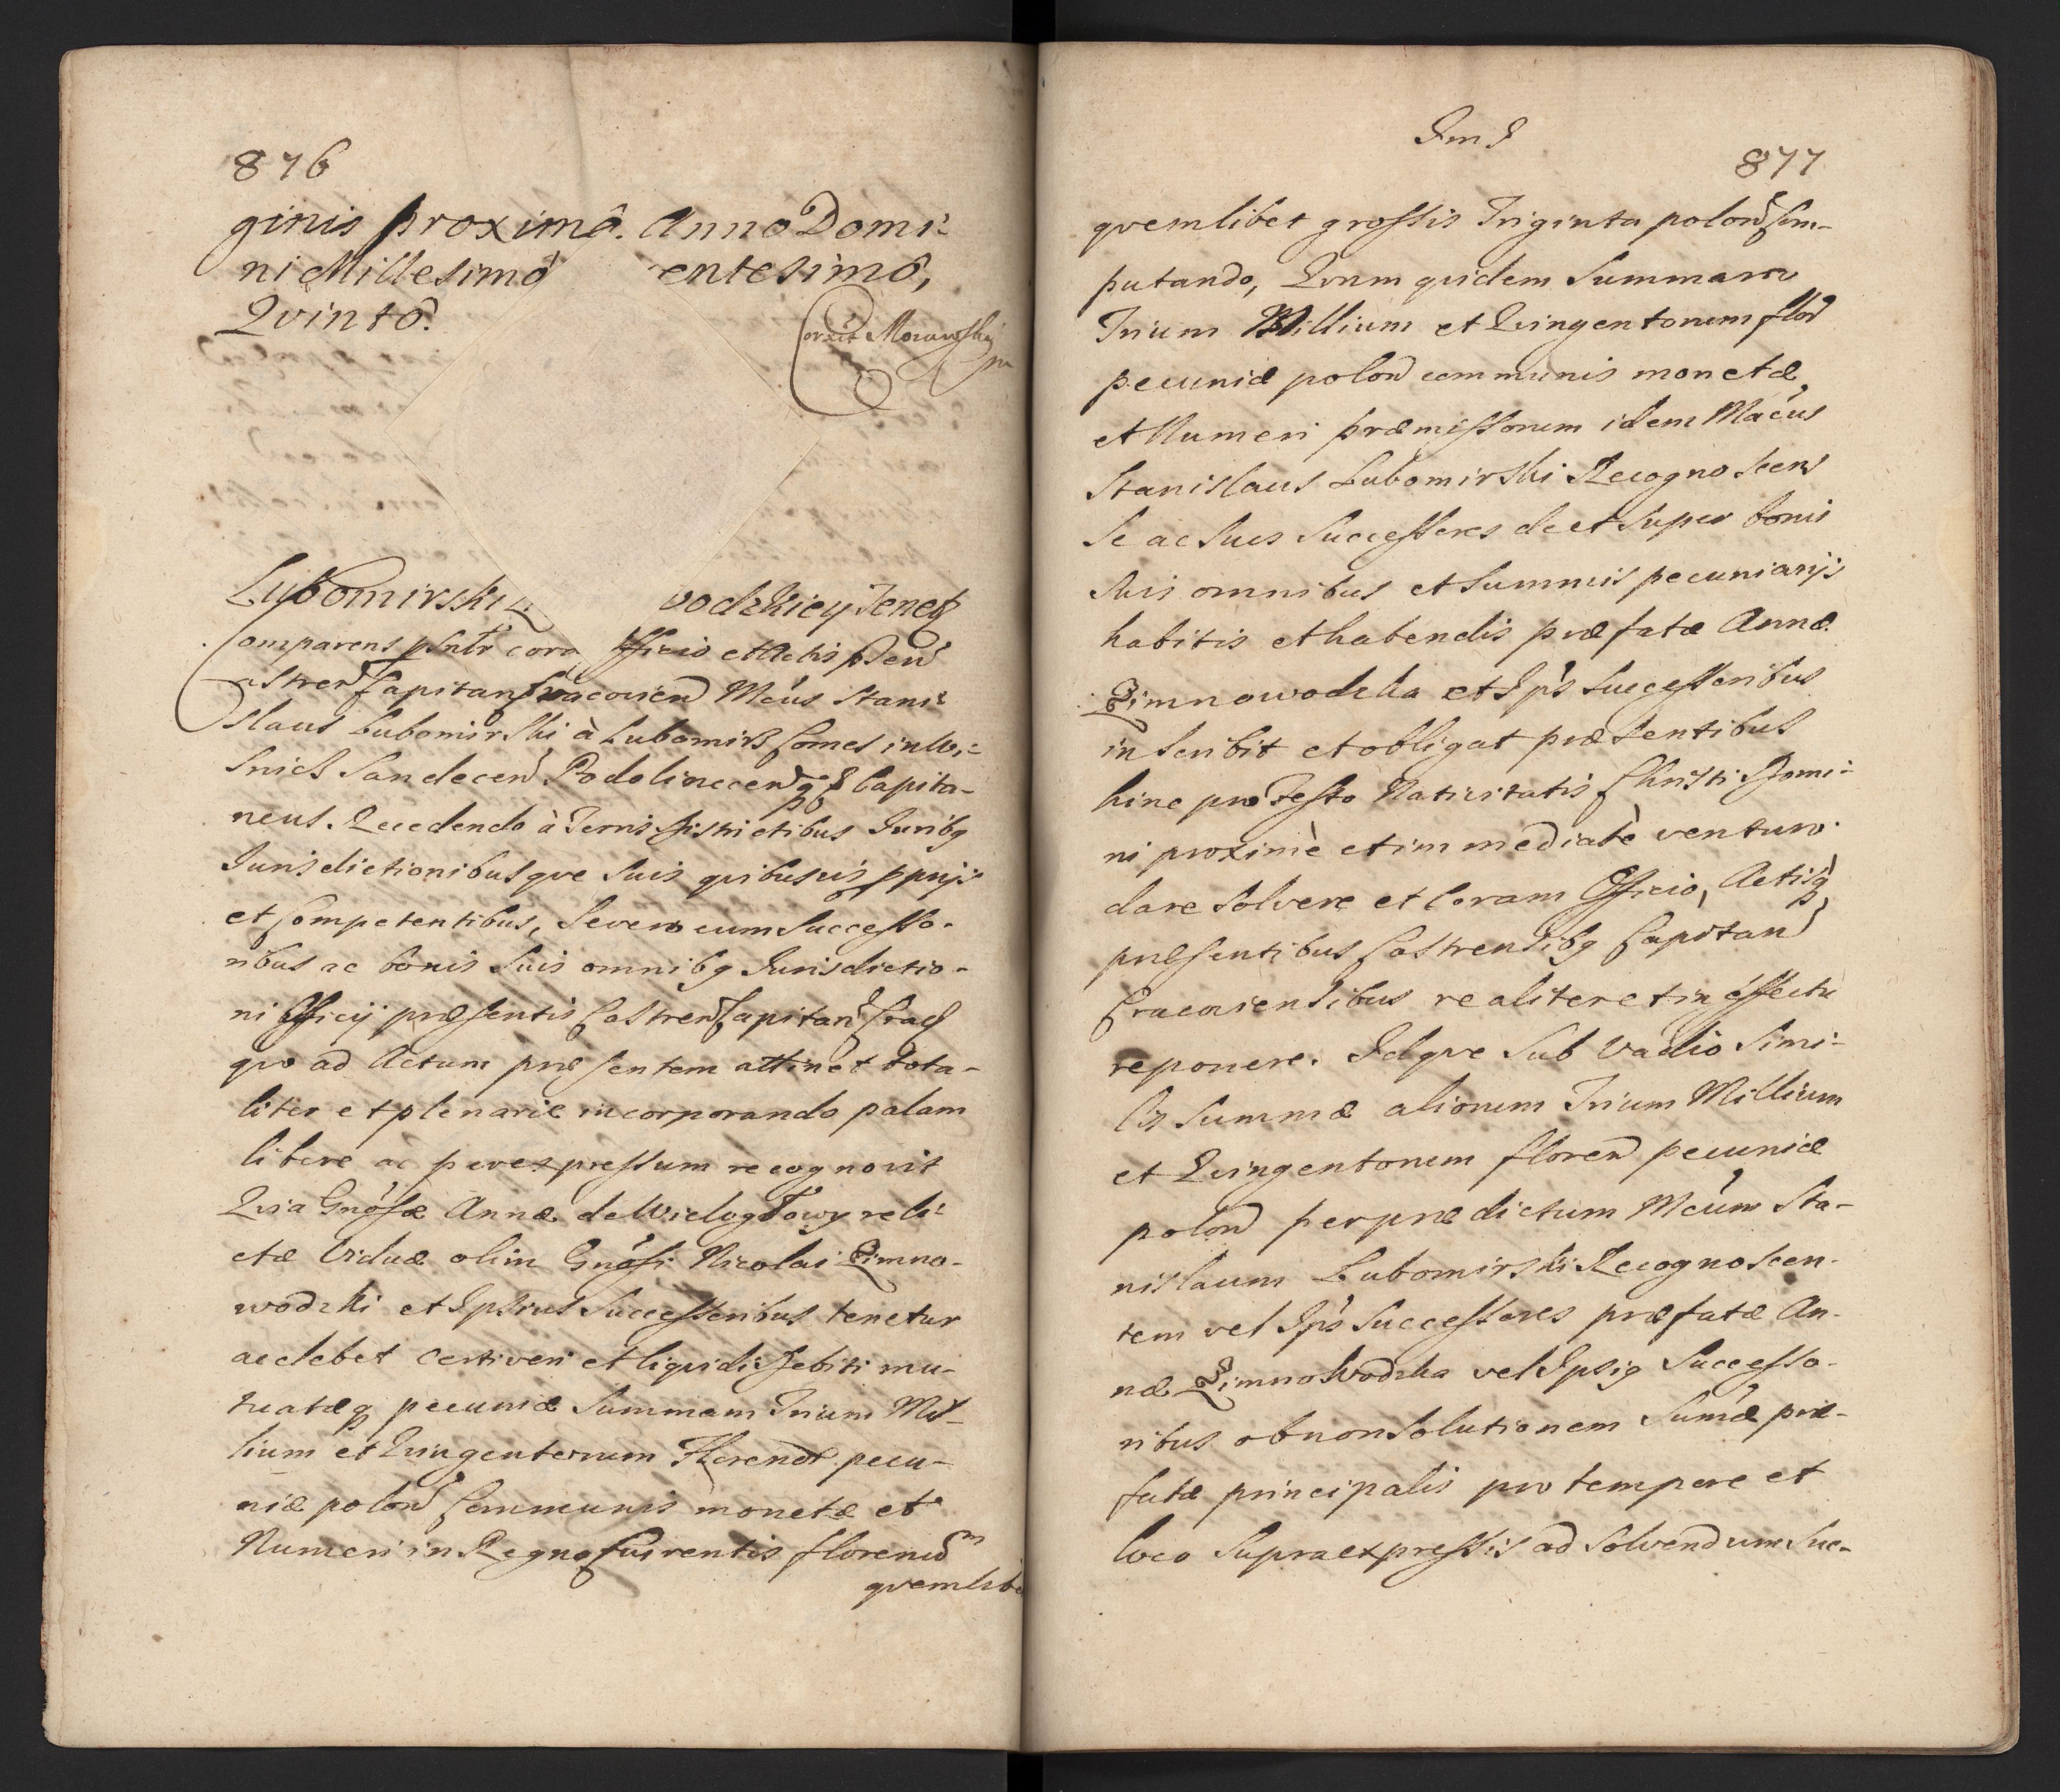 876
ginis proximô. Anno Domi-
ni Millesimô entesimô,
Qvintô.
Correxit Morawski
mp
Lubomirski vodzkiey Tenet
Comparens psntr cora Officio et Actis psen
Castren Capitan Cracovien Mcus Stani-
slaus Lubomirski à Lubomirz Comes in Wi-
snicz Sandecen Podolinecen qz Capita-
neus. Recedendo à Terris Districtibus Juribq
Jurisdictionibusqve Suis qvibusvis pprijs
et Competentibus, Se vero cum Successo-
ribus ac bonis Suis omnibq Jurisdictio-
ni Officij præsentis Castren Capitan Crac
qvo ad Actum præsentem attinet tota-
liter et plenarie incorporando palam
libere ac per expressum recognovit
Qvia Gnosæ Annæ de Wielogłowy reli-
ctæ Viduæ olim Gnosi Nicolai Zimno-
wodzki et Ipsius Successoribus tenetur
ac debet certi veri et liqvidi Debiti mu-
tuatæq pecuniæ Summam Trium Mil-
lium et Qvingentorum Floren pecu-
niæ polon Communis monetæ et
Numeri in Regno Currentis florenum
qvemlib
Im J
877
qvemlibet grossis Triginta polon Com-
putando, Qvam qvidem Summam
Trium Millium et Qvingentorum flor
pecuniæ polon communis monetæ
et Numeri præmissorum idem Mácus
Stanislaus Lubomirski Recognoscens
Se ac Suos Successores de et Super bonis
Suis omnibus et Summis pecuniarijs
habitis et habendis præfatæ Annæ
Zimnowodzka et Ips Successoribus
inscribit et obligat præsentibus
hinc pro Festo Nativitatis Christi Domi-
ni proximè et immediatè venturo
dare Solvere et Coram Officio, Actisq
præsentibus Castrensibq Capitan
Cracoviensibus realiter et in effectu
reponere. Idqve Sub Vadio Simi-
lis Summæ aliorum Trium Millium
et Qvingentorum floren pecuniæ
polon per prædictum Mcum Sta-
nislaum Lubomirski Recognoscen-
tem vel Ips Successores præfatæ An-
næ Zimnowodzka vel Ipsiq Successo-
ribus ob non Solutionem Sumæ præ-
fatæ principalis pro tempore et
loco Supraexpressis ad Solvendum Suc-